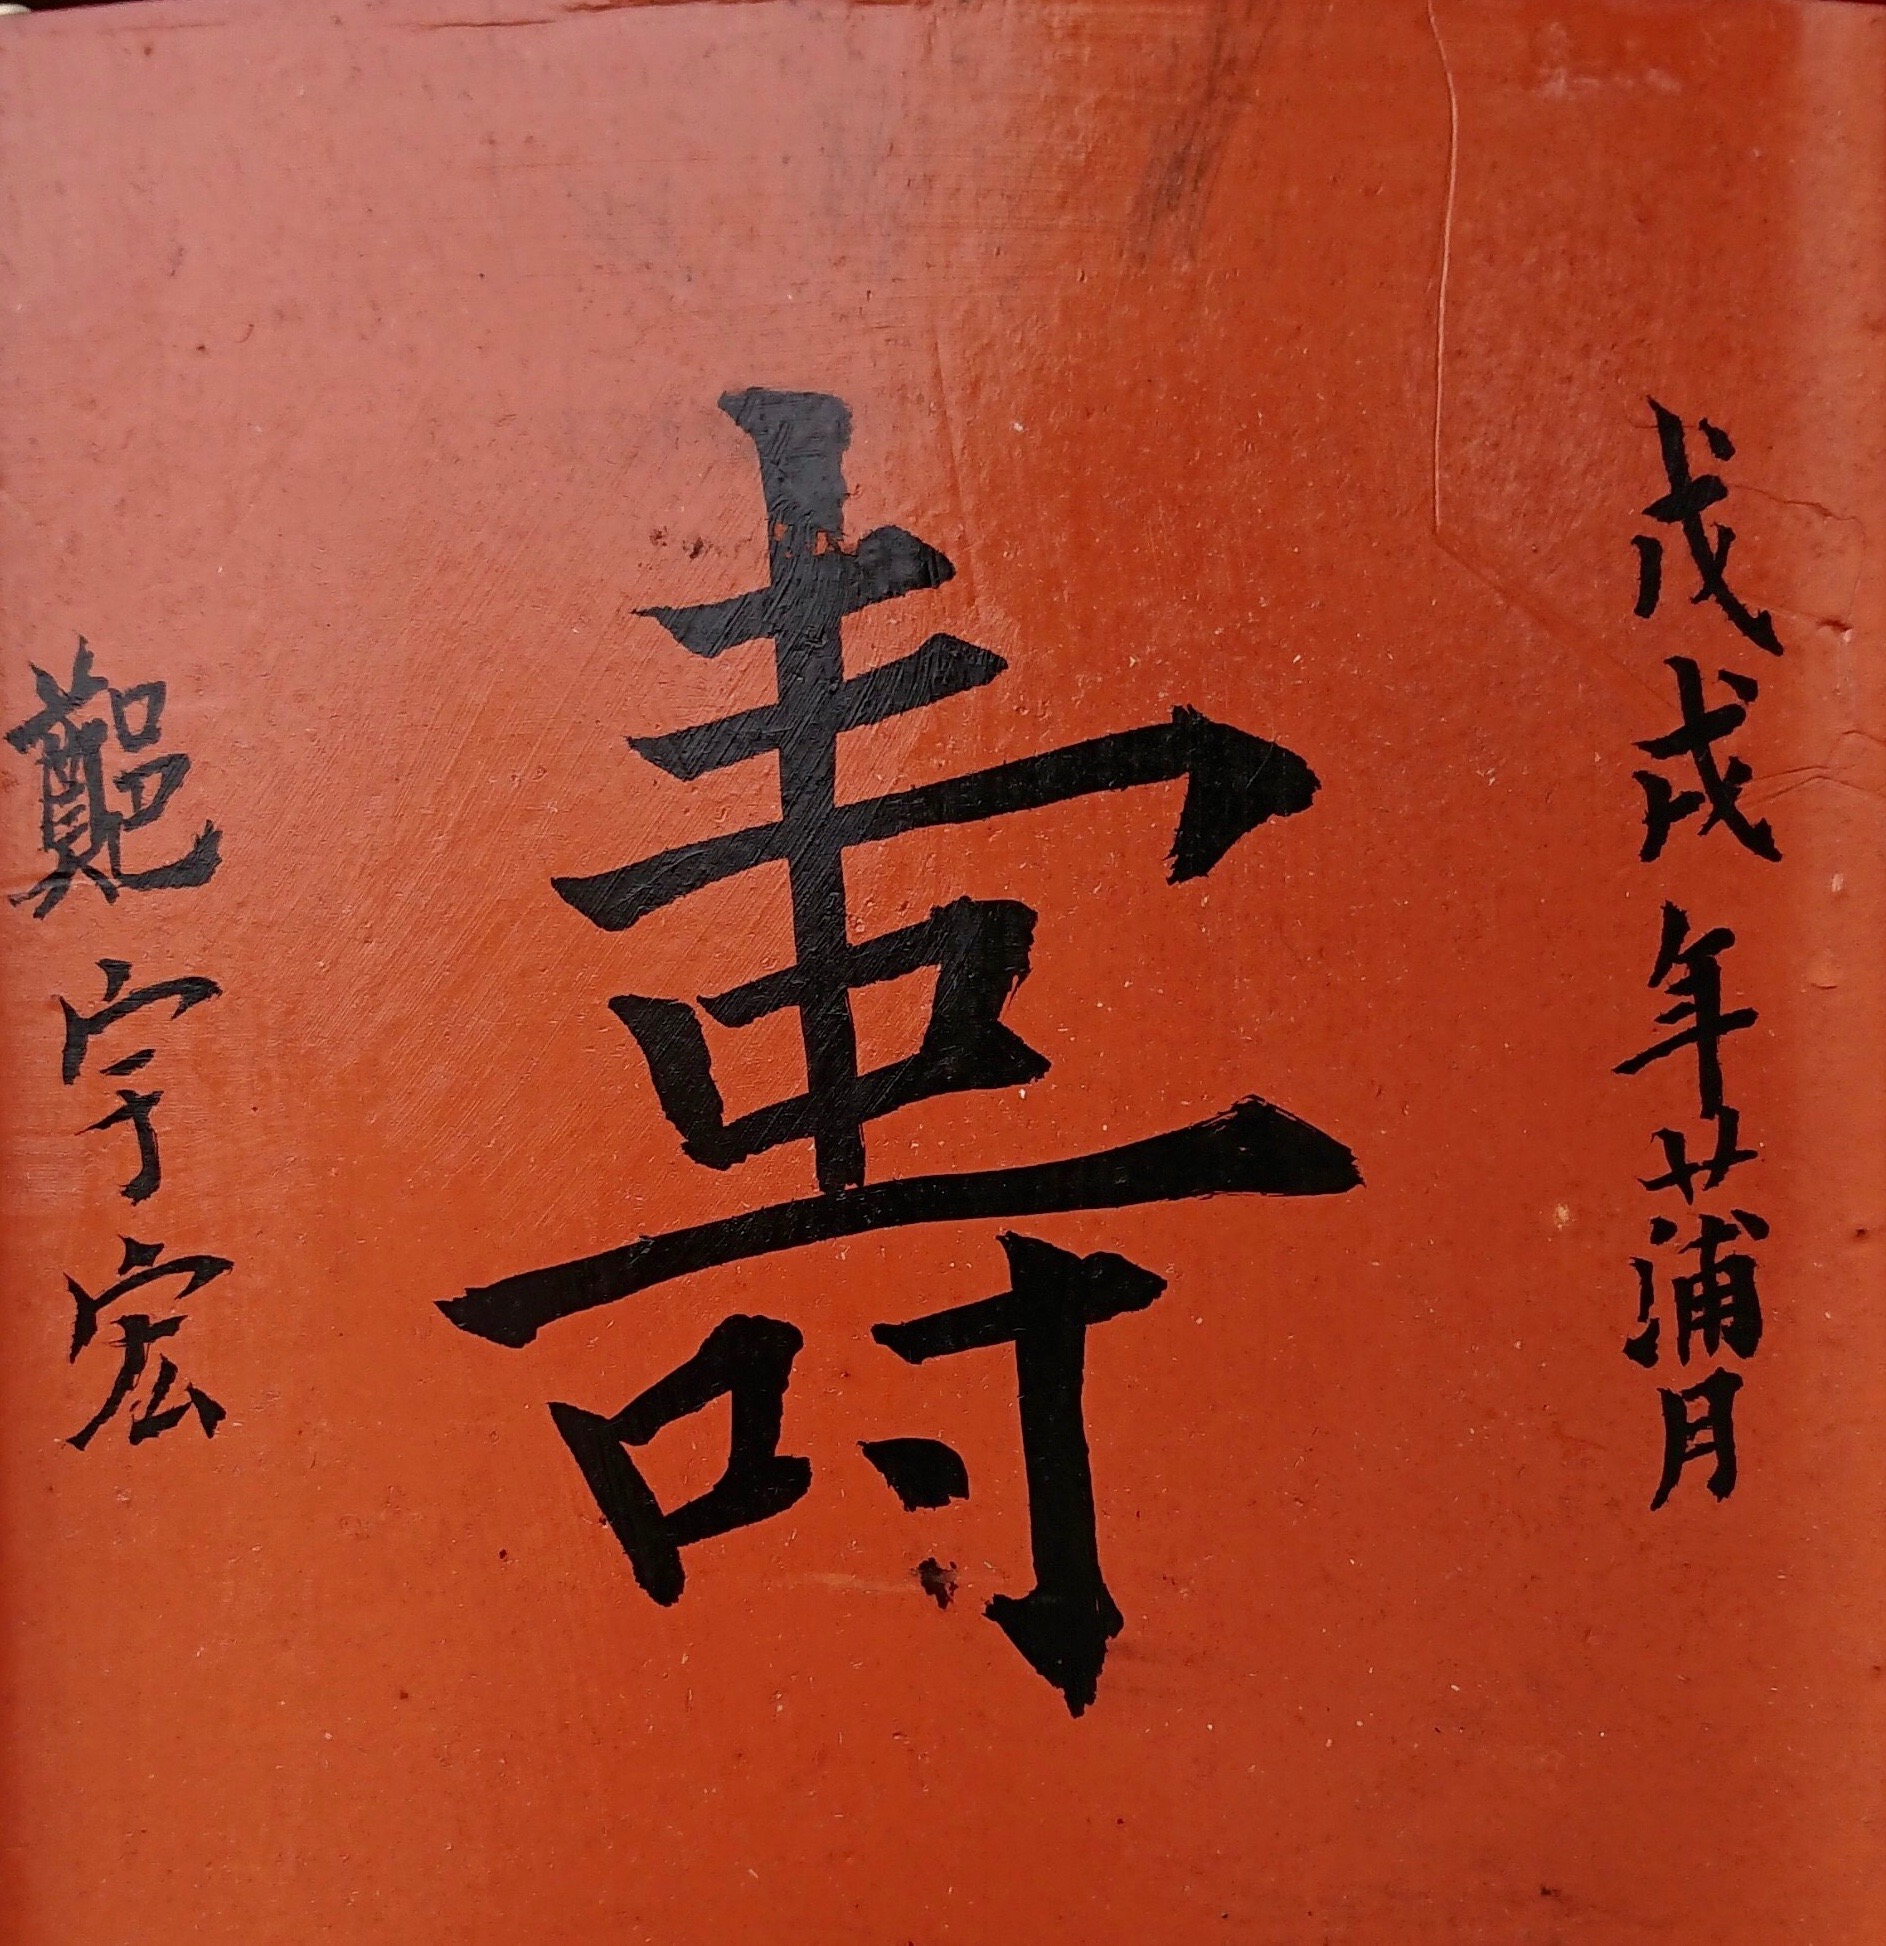 戊戌年蒲月
壽
鄭宇宏